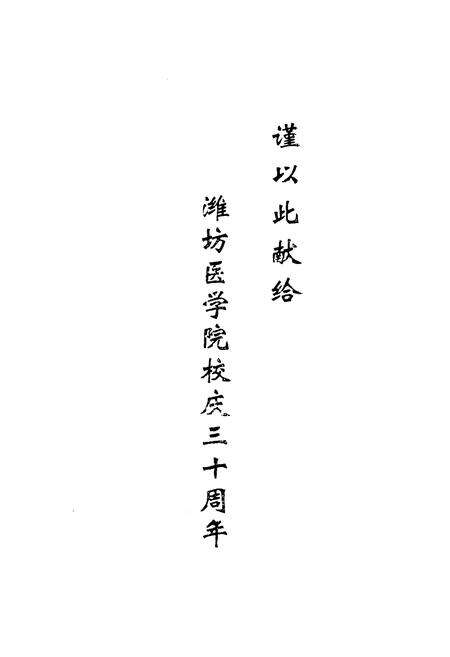 谨以此献给
潍坊医学院校庆三十周年